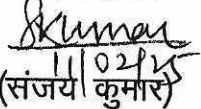 Skumar
11/02/25
(संजय कुमार)